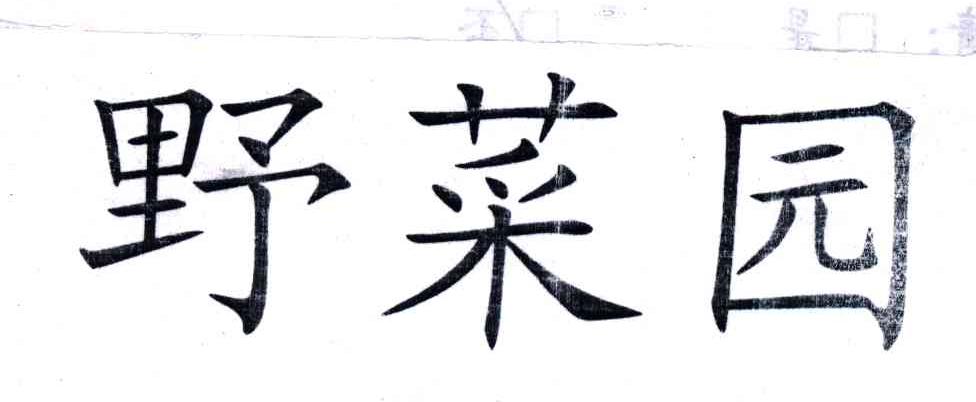 野菜园